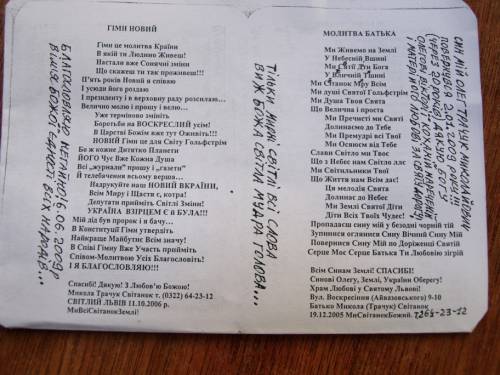 ГІМН НОВИЙ
Гімн це молитва Країни
В якій ти Людино Живеш!
Настали вже Сонячні зміни
Що скажеш ти так проживеш!!!
П’ять років Новий я співаю
І усюди його роздаю
І президенту і в верховну раду розсилаю…
Велично молю і прошу і велю…
Уже терміново змініть
Боротьби на ВОСКРЕСНИЙ усім!
В Царстві Божім вже тут Оживіть!!!
НОВИЙ Гімн це для Світу Гольфстрім
Бо ж кожне Дитятко Планети
ЙОГО Чує Вже Кожна Душа
Всі „журнали” прошу і „газети”
Й телебачення всьому верша…
Надрукуйте наш НОВИЙ ВКРАЇНИ,
Всім Миру і Щастя є, котра!
Депутати прийміть Світлі Зміни!
УКРАЇНА ВЗІРЦЕМ Є й БУЛА!!!
Мій дід був пророк і я бачу…
В Конституції Гімн утвердіть
Найкраще Майбутнє Всім значу!
В Співі Гімну Вже Участь прийміть
Співом-Молитвою Усіх Благословіть!
І Я БЛАГОСЛОВЛЯЮ!!!
Спасибі! Дякую! З Любов’ю Божою!
Микола Трачук Світанок т. (0322) 64-23-12
СВІТЛИЙ ЛЬВІВ 11.10.2006 р.
МиВсіСвітанокЗемлі!
БЛАГОСЛОВЛЯЮ НЕГАЙНО! 6.06.2009р
В ім’я БОЖОЇ ЄДНОСТІ ВСІХ НАРОДІВ…
ТІЛЬКИ МИРИ СВІТЛІ ВСІ СЛОВА
ВИЖ БОЖА СВІТЛА МУДРА ГОЛОВА…
МОЛИТВА БАТЬКА
Ми Живемо на Землі
У Небесній Вишні
Ми Святі Діти Бога
У Вличній Тишні
Ми Станок Мру Всім
Ми душі Святої Гольфстрім
Ми Душа Твоя Свята
Що Воплочена в літа
Ми Пречисті ми Святі
Долинаємо до Тебе
Ми Премудрі всі Твої
Ми Осяюєм від Тебе
Слави Світло ми Твоє
Що з Небес нам Світло ллє
Ми Світильники Твої
Що Життя нам Всім дає!
Ця мелодія Свята
Долинає до Небес
Ми Землі Святої Діти
Діти Всіх Твоїх Чудес!
Пропадаєш сину мій у безодні чорній тій
Зупинися оглянися Сину Вічний Сину Мій
Повернися Сину Мій по Доріженці Святій
Серце Моє Серце Батька Ти Любовію зігрій
Всім Синам Землі! СПАСИБІ!
Синові Олегу, Землі, України Оберегу!
Храм Любові у Святому Львові!
Вул. Воскресіння (Айвазовського) 9-10
Батько Микола (Трачук) Світанок
19.12.2005 МиСвітанокБожий. т264-23-12
СИН МІЙ ОЛЕГ ТРАЧУК МИКОЛАЙОВИЧ
ПОВЕРНУВСЯ 2.05.2009 РОКУ!!!